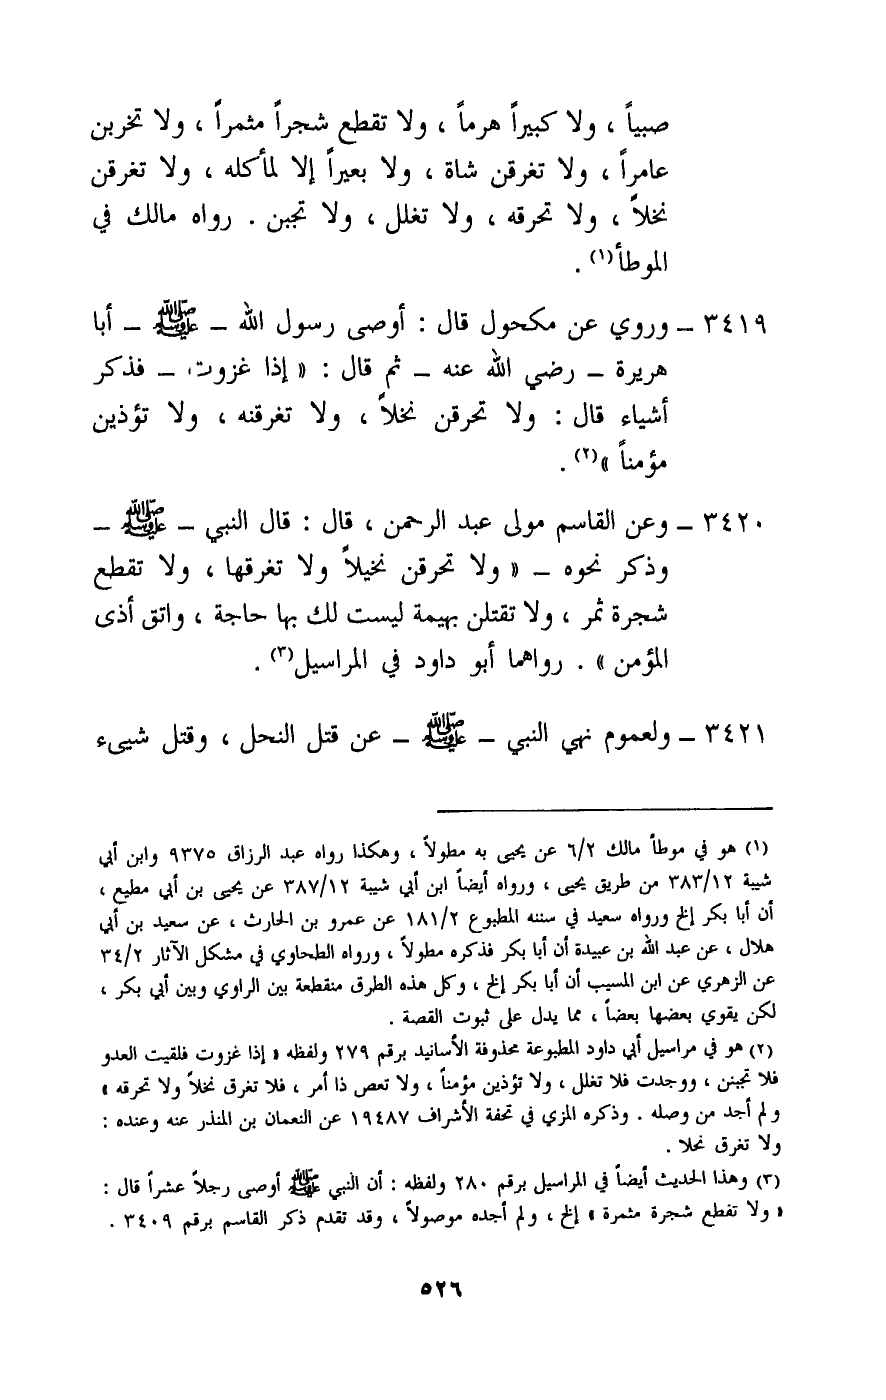 صبياً ، ولا كبيراً هرماً ، ولا تقطع شجراً مثمراً ، ولا تخربن
عامراً ، ولا تغرقن شاة ، ولا بعيراً إلا لمأكله ، ولا تغرقن
نخلاً ، ولا تحرقه ، ولا تغلل ، ولا تجبن . رواه مالك في
الموطأ(١) .
٣٤١٩ ــ وروي عن مكحول قال : أوصى رسول الله ــ ﷺ ــ أبا
هريرة ــ رضي الله عنه ــ ثم قال : « إذا غزوت، ــ فذكر
أشياء قال : ولا تحرقن نخلاً ، ولا تغرقنه ، ولا تؤذين
مؤمناً »(٢) .
٣٤٢٠ ــ وعن القاسم مولى عبد الرحمن ، قال : قال النبي ــ ﷺ ــ
وذكر نحوه ــ « ولا تحرقن نخيلاً ولا تغرقها ، ولا تقطع
شجرة ثمر ، ولا تقتلن بهيمة ليست لك بها حاجة ، واتق أذى
المؤمن » . رواهما أبو داود في المراسيل(٣) .
٣٤٢١ ــ ولعموم نهي النبي ــ ﷺ ــ عن قتل النحل ، وقتل شيىء
(١) هو في موطأ مالك ٦/٢ عن يحيى به مطولاً ، وهكذا رواه عبد الرزاق ٩٣٧٥ وابن أبي
شيبة ٣٨٣/١٢ من طريق يحيى ، ورواه أيضاً ابن أبي شيبة ٣٨٧/١٢ عن يحيى بن أبي مطيع ،
أن أبا بكر إلخ ورواه سعيد في سننه المطبوع ١٨١/٢ عن عمرو بن الحارث ، عن سعيد بن أبي
هلال ، عن عبد الله بن عبيدة أن أبا بكر فذكره مطولاً ، ورواه الطحاوي في مشكل الآثار ٣٤/٢
عن الزهري عن ابن المسيب أن أبا بكر إلخ ، وكل هذه الطرق منقطعة بين الراوي وبين أبي بكر ،
لكن يقوي بعضها بعضاً ، مما يدل على ثبوت القصة .
(٢) هو في مراسيل أبي داود المطبوعة محذوفة الأسانيد برقم ٢٧٩ ولفظه « إذا غزوت فلقيت العدو
فلا تجبنن ، ووجدت فلا تغلل ، ولا تؤذين مؤمناً ، ولا تعص ذا أمر ، فلا تغرق نخلاً ولا تحرقه »
ولم أجد من وصله . وذكره المزي في تحفة الأشراف ١٩٤٨٧ عن النعمان بن المنذر عنه وعنده :
ولا تغرق نحلا .
(٣) وهذا الحديث أيضاً في المراسيل برقم ٢٨٠ ولفظه : أن النبي ﷺ أوصى رجلاً عشراً قال :
« ولا تقطع شجرة مثمرة » إلخ ، ولم أجده موصولاً ، وقد تقدم ذكر القاسم برقم ٣٤٠٩ .
٥٢٦